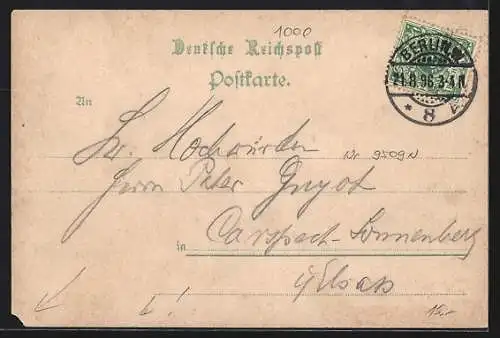 1000
Deutsche Reichspost
Postkarte.
BERLIN W
21.8.96.3-4N
* 8
An
Sr. Hochwürden
Nr 9509N
Herrn Pater Guyot
in Carspach-Sonnenberg
i/Elsass
15,-